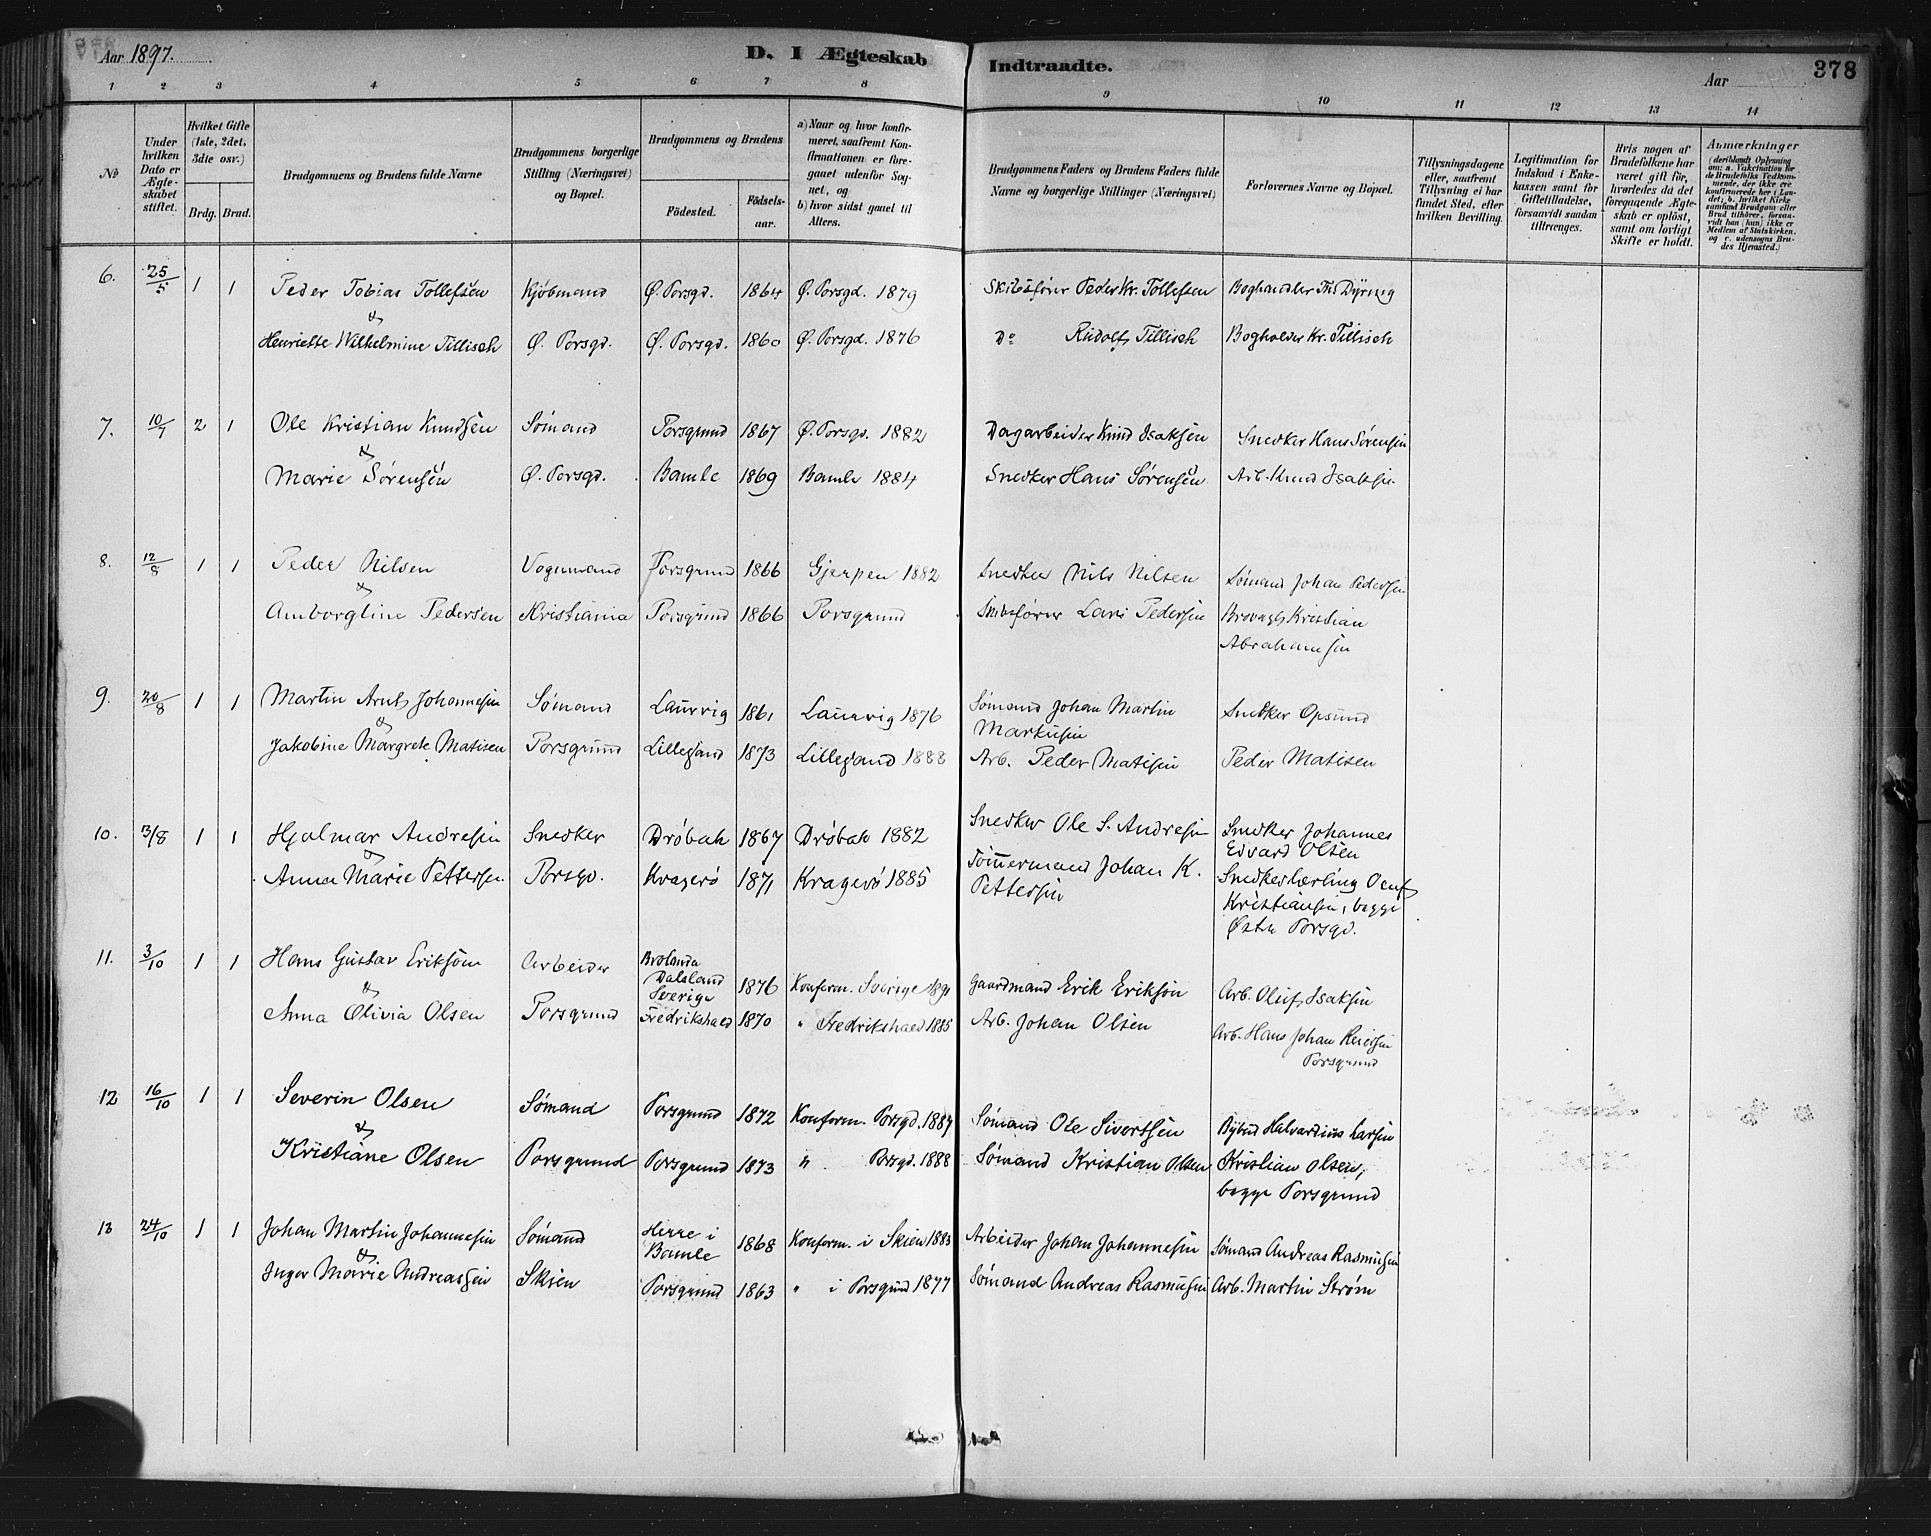 Aar 1897.
D. I Ægteskab Indtraadte.
Aar
378
1 2 3 4 5 6 7 8 9 10 11 12 13 14
No
Under hvilken Dato er Ægteskabet stiftet.
Hvilket Gifte (1ste, 2det, 3die osv.)
Brdg. Brud.
Brudgommens og Brudens fulde Navne
Brudgommens borgerlige Stilling (Næringsvei) og Bopæl.
Brudgommens og Brudens
Födested. Födselsaar.
a) Naar og hvor konfirmeret, saafremt Konfirmationen er foregaaet udenfor Sognet, og
b) hvor sidst gaaet til Alters.
Brudgommens Faders og Brudens Faders fulde Navne og borgerlige Stillinger (Næringsvei)
Forlovernes Navne og Bopæl.
Tillysningsdagene eller, saafremt Tillysning ei har fundet Sted, efter hvilken Bevilling.
Legitimation for Indskud i Enkekassen samt for Giftetilladelse, forsaavidt saadan tiltrænges.
Hvis nogen af Brudefolkene har været gift för, hvorledes da det foregaaende Ægteskab er oplöst, samt om lovligt Skifte er holdt.
Anmærkninger
(deriblandt Oplysning om: a. Vakcination for de Brudefolks Vedkommende, der ikke ere konfirmerede her i Landet; b. hvilket Kirkesamfund Brudgom eller Brud tilhörer, forsaavidt han (hun) ikke er Medlem af Statskirken, og c. udensogns Brudes Hjemsted.)
6. 25/5 1 1 Peder Tobias Tollefsen Kjøbmand Ø. Porsgd. 1864 Ø. Porsgd. 1879 Skibsfører Peder Kr. Tollefsen Boghandler Ths Dyring
&
Henriette Wilhelmine Tillisch Ø. Porsgd. Ø. Porsgd. 1860 Ø. Porsgd. 1876 Do Rudolf Tillisch Bogholder Kr. Tillisch
7. 10/7 2 1 Ole Kristian Knudsen Sømand Porsgrund 1867 Ø. Porsgd. 1882 Dagarbeider Knud Isaksen Snedker Hans Sørensen
&
Marie Sørensen Ø. Porsgd. Bamle 1869 Bamle 1884 Snedker Hans Sørensen Arb. Knud Isaksen
8. 12/8 1 1 Peder Nilsen Vognmand Porsgrund 1866 Gjerpen 1882 Snedker Nils Nilsen Sømand Johan Pedersen
&
Amborgline Pedersen Kristiania Porsgrund 1866 Porsgrund Skibsfører Lars Pedersen Brovagt Kristian
Abrahamsen
9. 20/8 1 1 Martin Arnt Johannesen Sømand Laurvig 1861 Laurvig 1876 Sømand Johan Martin
Markusen Snedker Opsund
&
Jakobine Margrete Matisen Porsgrund Lillesand 1873 Lillesand 1888 Arb. Peder Matisen Peder Matisen
10. 13/8 1 1 Hjalmar Andresen Snedker Drøbak 1867 Drøbak 1882 Snedker Ole S. Andresen Snedker Johannes
Edvard Olsen
&
Anna Marie Pettersen Porsgd. Kragerø 1871 Kragerø 1885 Tømmermand Johan K.
Pettersen Snedkerlærling Oluf
Kristiansen, begge
Østre Porsgd.
11. 3/10 1 1 Hans Gustav Erikson Arbeider Brolanda
Dalsland
Sverige 1876 Konfirm. Sverige 1891 Gaardmand Erik Erikson Arb. Oluf Isaksen
&
Anna Olivia Olsen Porsgrund Fredrikshald 1870 " Fredrikshald 1885 Arb. Johan Olsen Arb. Hans Johan Reiersen
Porsgrund
12 16/10 1 1 Severin Olsen Sømand Porsgrund 1872 Konform. Porsgd. 1887 Sømand Ole Sivertsen Bybud Halvardius Larsen
&
Kristiane Olsen Porsgrund Porsgrund 1873 " Porsgd. 1888 Sømand Kristian Olsen Kristian Olsen,
begge Porsgrund
13 24/10 1 1 Johan Martin Johannesen Sømand Herre i
Bamle 1868 Konform. i Skien 1883 Arbeider Johan Johannesen Sømand Andreas Rasmusen
&
Inger Marie Andreassen Skien Porsgrund 1863 " i Porsgrund 1877 Sømand Andreas Rasmusen Arb. Martin Strøm